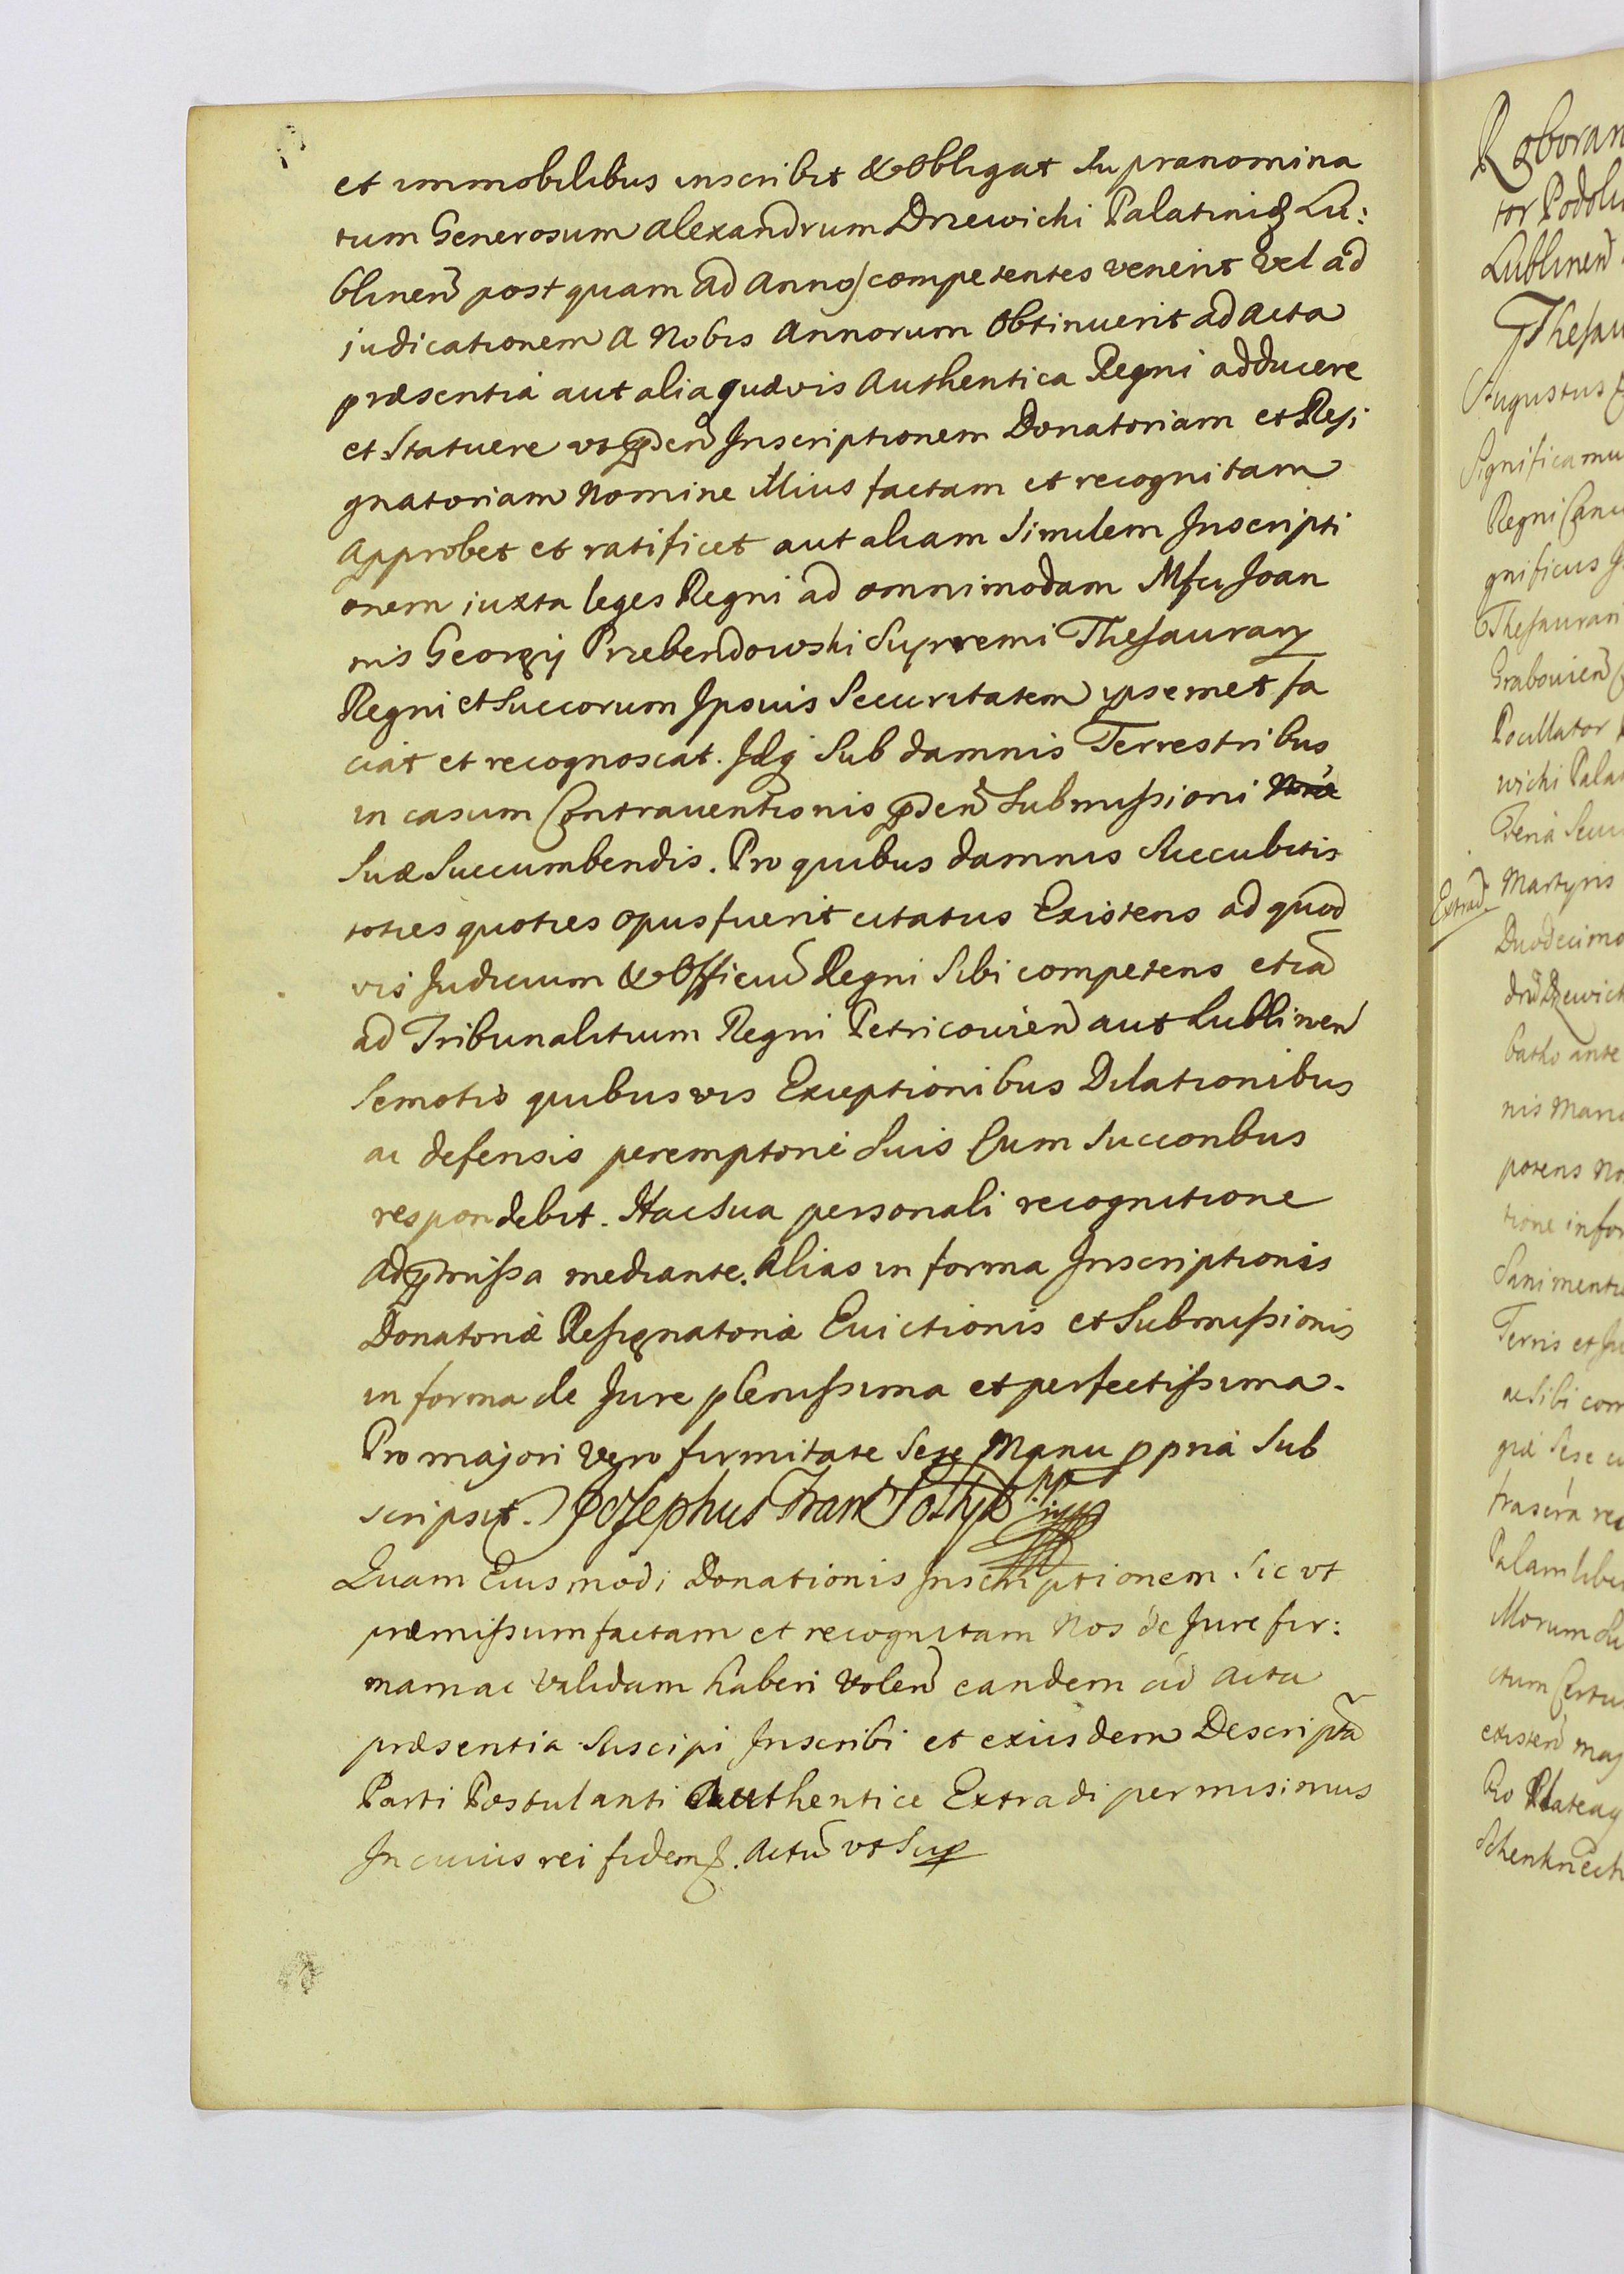 et immobilibus inscribit & Obligat supranomina
tum Generosum Alexandrum Drzewichi Palatinid Lu:
blinen post quam ad annos competentes venerit vel ad
judicationem a Nobis Annorum Obtinuerit ad Acta
præsentia aut alia quævis Authentica Regni adducere
et Statuere ut Inscriptionem Donatoriam et Resi
gnatoriam Nomine illius factam et recognitam
approbet et ratificet aut aliam Similem Inscripti
onem iuxta leges Regni ad omnimodam Mfci Joan
nis Georgij Przebendowski Supremi Thesaurarij
Regni et Succorum Ipsius Securitatem ipsemet fa
ciat et recognoscat. Idq Sub damnis Terrestribus
in casum Contrauentionis pden Submissioni
Suæ Succumbendis. Pro quibus damnis Succubitis
toties quoties opus fuerit citatus Existens ad quod
vis Judicium & Officiū Regni Sibi competens etiā
ad Tribunalitium Regni Petricouien aut Lublinen
Semotis quibusvis Exceptionibus Dilationibus
ac defensis peremptorie Suis Cum Succoribus
respondebit. Hac Sua personali recognitione
ad pmissa mediante. Alias in forma Inscriptionis
Donatoriæ Resignatoriæ Euictionis et Submissionis
in forma de Jure plenissima et perfectissima.
Pro majori vero firmitate Sese Manu ppria Sub
scripsit. Josephus Fran Potkij
Quam Eiusmodi Donationis Inscriptionem Sic ut
præmissum factam et recognitam Nos de Jure fir:
mam ac Validam haberi Volen eandem ad acta
præsentia Suscipi Inscribi et exiusdem Descriptā
Parti Postulanti Authentice Extradi permisimus
In cuius rei fidem. Actū ut Sup
Roboran
tor Podoli
Lublinen
Thesau
Augustus
Significamu
Regni Canc
gnificus
Thesaurari
Grabouien
Pocillator
wichi Pala
Extrad. Martyris
Duodecimo
batho ante
nis Mari
potens No
tione infor
Sani mentis
Terris et
ac Sibi com
Palam libe
Morum
existen maj
Pro Plateay
Schenknecht